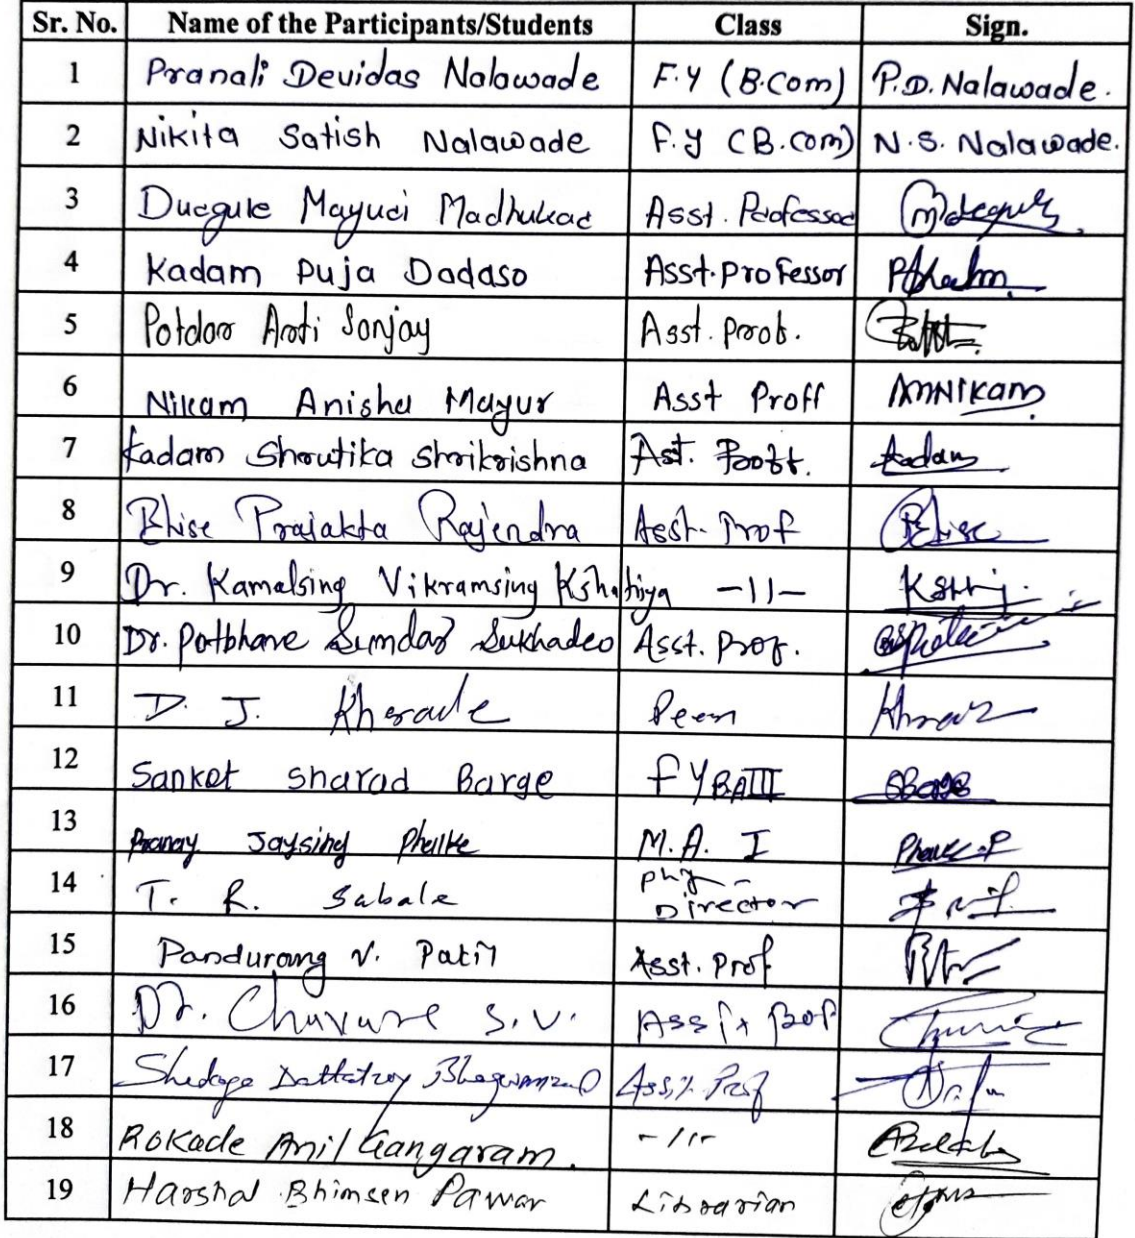 Sr. No. Name of the Participants/Students Class Sign.
1 Pranali Devidas Nalawade F.Y (B.Com) P.D. Nalawade.
2 Nikita Satish Nalawade F.Y (B.com) N.S. Nalawade.
3 Durgule Mayuri Madhukar Asst. Professor
4 Kadam Puja Dadaso Asst. Professor
5 Potdar Arti Sanjay Asst. Prof.
6 Nikam Anisha Mayur Asst Proff AMNikam
7 Kadam Shrutika Shrikrishna Ast. Proff. Kadam
8 Bhise Prajakta Rajendra Asst. Prof Bhise
9 Dr. Kamalsing Vikramsing Kshatriya -11-
10 Dr. Patbhane Sundar Sukhadeo Asst. Prof.
11 D. J. Kharade Peon
12 Sanket Sharad Barge F Y BA III
13 Pranay Jaysing Phalke M.A. I
14 T. R. Sabale Phy- Director
15 Pandurang V. Patil Asst. Prof
16 Dr. Chavare S.V. Asst Prof
17 Shedage Dattatray Asst. Prof
18 Rokade Anil Gangaram. -11-
19 Harshal Bhimsen Pawar Librarian